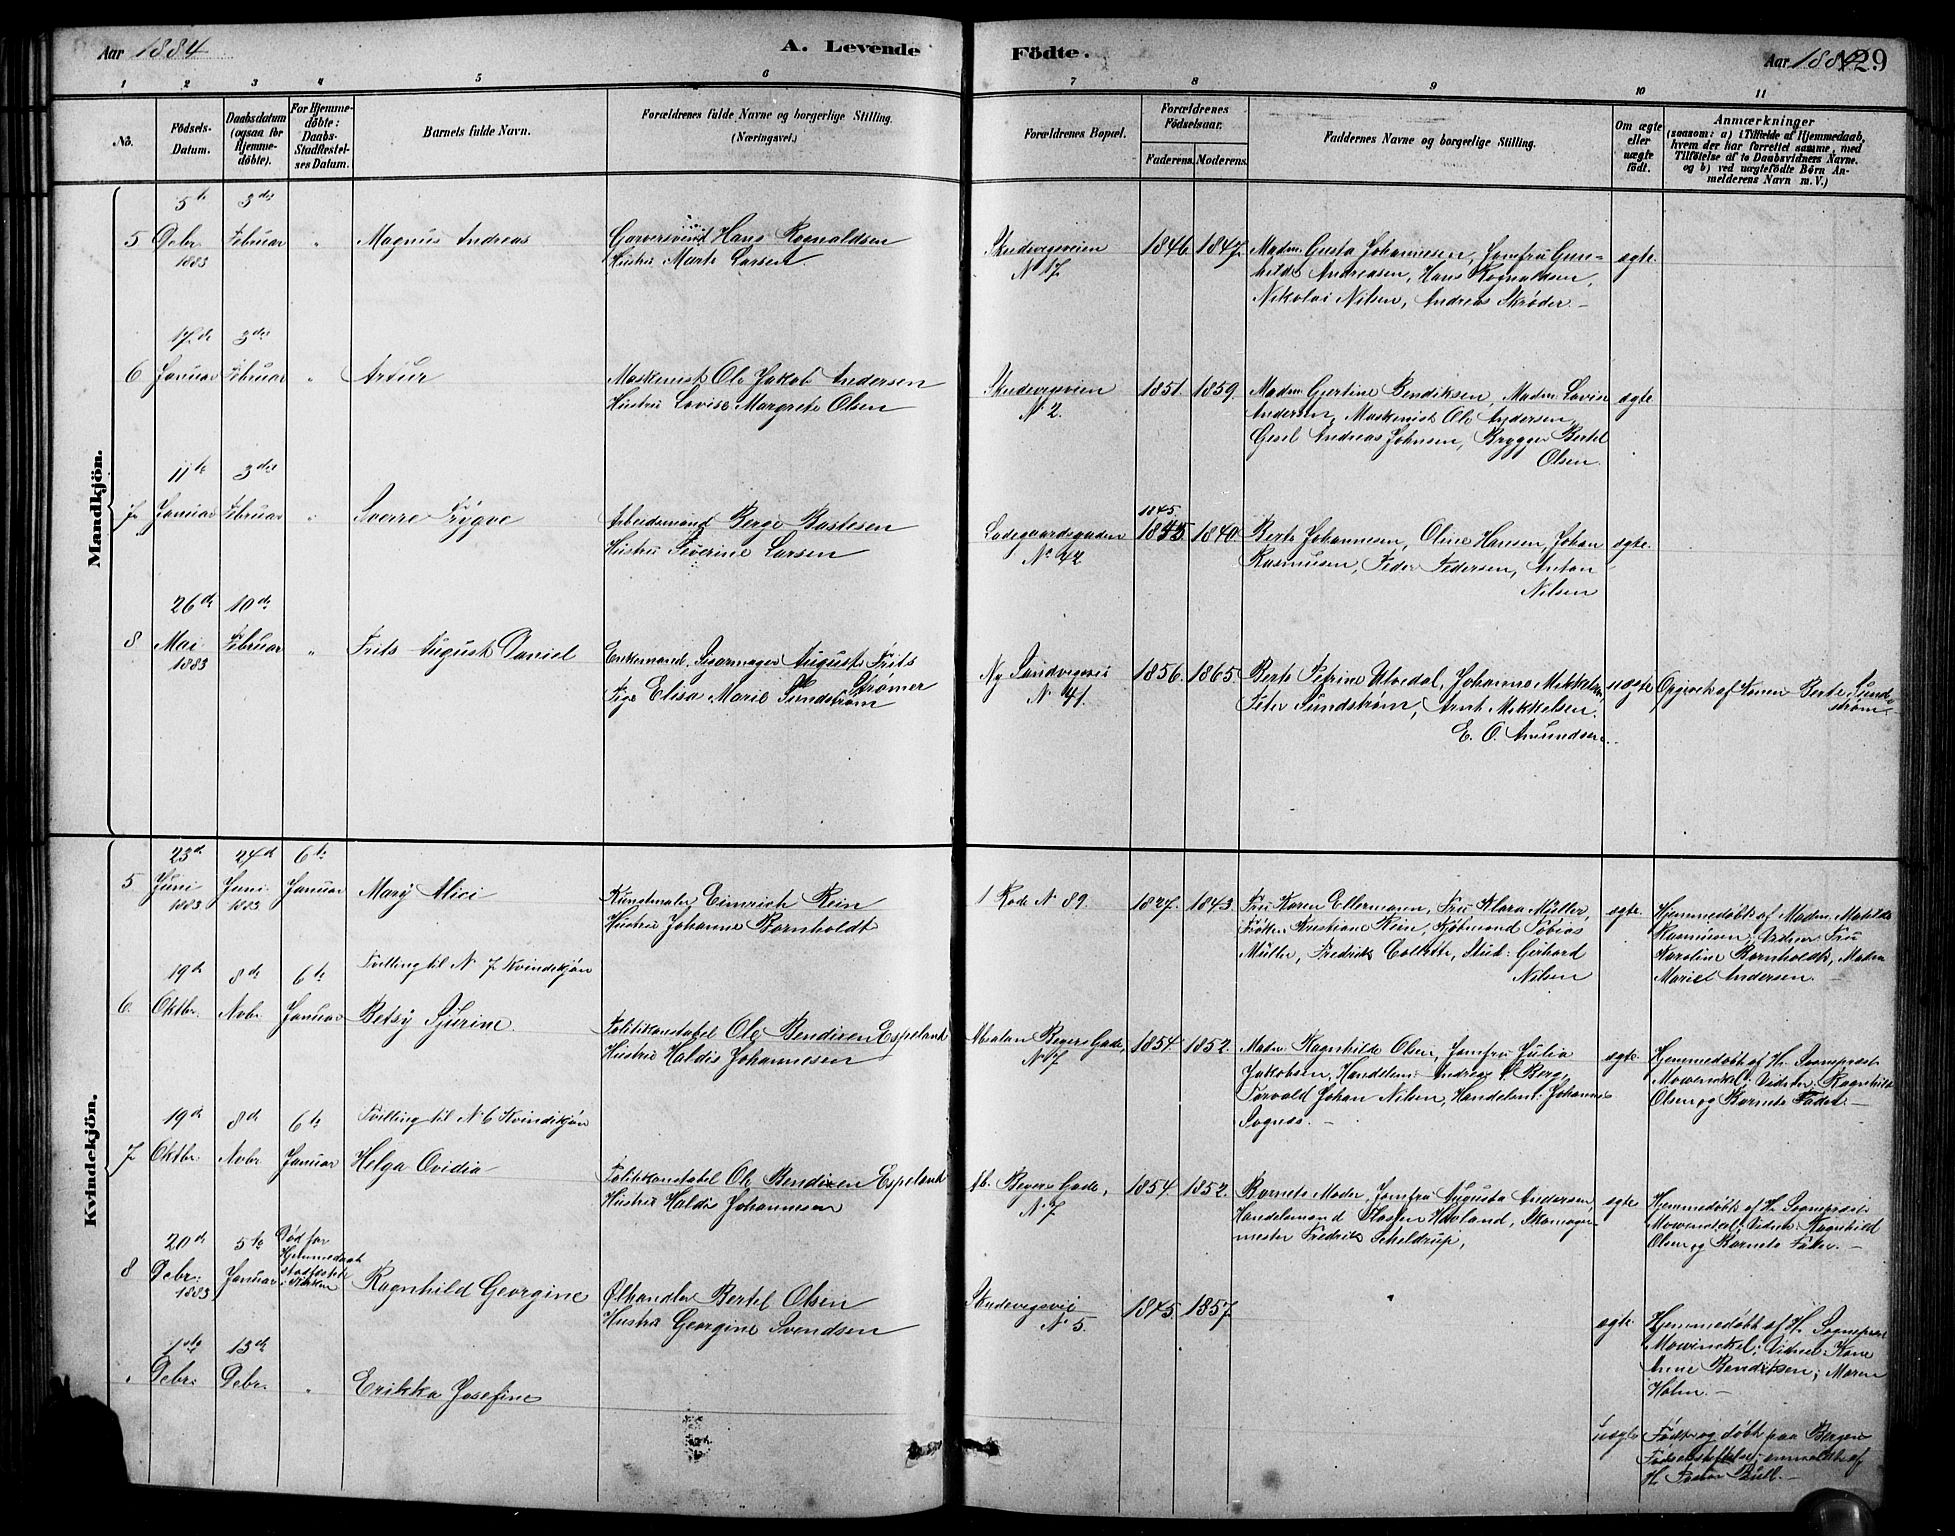 Aar 1884
A. Levende
Födte.
Aar 1884
129
1 2 3 4 5 6 7 8 9 10 11
No.
Födsels-Datum.
Daabsdatum (ogsaa for Hjemmedöbte).
For Hjemmedöbte: Daabs-Stadfæstelses Datum.
Barnets fulde Navn.
Forældrenes fulde Navne og borgerlige Stilling.
(Næringsvei.)
Forældrenes Bopæl.
Forældrenes Födselsaar.
Faderens. Moderens.
Faddernes Navne og borgerlige Stilling.
Om ægte eller uægte födt.
Anmærkninger
(saasom: a) i Tilfælde af Hjemmedaab, hvem der har forrettet samme, med Tilföielse af to Daabsvidners Navne. og b) ved uægtefödte Börn Anmelderens Navn m. V.)
Mandkjön.
5te 3die
5 Debr. 1883 Februar " Magnus Andreas
Garversvend Hans Rognaldsen
Hustru Marte Larsen
Skudevigsveien
No 17
1846. 1847.
Madm. Gusta Johannesen, Jomfru Gun=
hilde Andreasen, Hans Rognaldsen,
Nikolai Nilsen, Andreas Skrøder.-
ægte.
17de 3die
6 Januar Februar " Artur
Maskenist Ole Jakob Andersen
Hustru Lovise Margrete Olsen
Skudevigsveien
No 2.
1851. 1859.
Madm. Gjertine Bendiksen, Madm. Lovise
Andersen, Maskenist Ole Andersen,
Gesel Andreas Johnsen, Brygger Bertel
Olsen.
ægte
11te 3die
7 Januar Februar " Sverre Trygve
Arbeidsmand Berge Bastesen
Hustru Severine Larsen
Ladegaardsgaden
No 42
1845.
1840.
Berte Johannesen, Oline Hansen, Johan
Rasmusen, Peder Pedersen, Anton
Nilsen
ægte.
26de 10de
8 Mai 1883 Februar " Frits August Daniel
Enkemand Sigarmager August Frits
Strømer
Pige Elisa Marie Sundstrøm
Ny Sandvigsvei
No 41.
1856. 1865
Berte Petrine Ulvedal, Johanne Mikkelsen
Peter Sundstrøm, Arnt Mikkelsen.
E. O. Amundsen.
uægte
Opgivet af Konen Berte Sund=
strøm.-
Kvindekjön.
23de 24de 6te
5 Juni 1883 Juni 1883 Januar Mary Alici
Kunstmaler Eimrich Rein
Hustru Johanne Bornholdt
1 Rode No 89.
1827. 1843.
Fru Karen Ellermann, Fru Klara Müller,
Frøken Kristiane Rein, Kjøbmand Tobias
Müller, Fredrik Collette, Stud: Gerhard
Nilsen
ægte.
Hjemmedøbt af Madm. Matilde
Rasmusen, Vidner: Fru
Karoline Bornholdt, Madm
Mariel Andersen.
19de 8de 6te
Tvilling til No 7 Kvindekjøn
6. Oktbr. Nvbr. Januar Betsy Sjurine
Politikonstabel Ole Bendixen Espeland
Hustru Haldis Johannesen
Absalon Beyers Gade,
No 7
1854. 1852.
Madm Ragnhilde Olsen, Jomfru Julia
Jakobsen, Handelsm: Andreas Berg,
Torvald Johan Nilsen, Handelsmt. Johannes
Sognæs.-
ægte.
Hjemmedøbt af Hr. Sognepræst
Mowinckel; Vidner: Ragnhild
Olsen og Barnets Fader.-
19de 8de 6te
Tvilling til No 6 Kvindekjøn
7 Oktbr. Nvbr Januar Helga Ovidia
Politikonstabel Ole Bendixen Espeland
Hustru Haldis Johannesen
Ab. Beyers Gade,
No 7
1854. 1852.
Barnets Moder, Jomfru Augusta Andersen,
Handelsmand Hosten Havland, Skomager=
mester Fredrik Scheldrup,
ægte
Hjemmedøbt af Hr. Sognepræst
Mowinckel; Vidner: Ragnhild
Olsen og Barnets Fader.-
20de 5te
Død før Hjemmedaab stadfæstede i Kirken
8 Debr: 1883 Januar Ragnhild Georgine
Ølhandler Bertel Olsen
Hustru Georgine Svendsen
Skudevigsvei
No 5.
1845. 1857.
ægte.
Hjemmedøbt af Hr. Sognepræst
Mowinckel; Vidner: Kone
Anne Bendiksen; Maren
Holm.-
1ste 13de
" Debr: Debr. " Erikka Josefine
uægte
Født og døbt paa Bergens
Fødselsstiftelse; anmeldt af
Hr. Pastor Bull.-